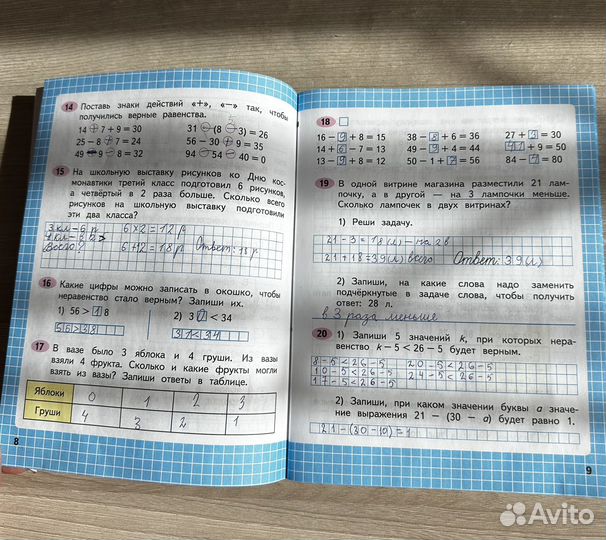 14 Поставь знаки действий «+», «−» так, чтобы
получились верные равенства.
14 + 7 + 9 = 30 31 − (8 − 3) = 26
25 − 8 + 7 = 24 56 − 30 + 9 = 35
49 − 9 − 8 = 32 94 − 54 − 40 = 0
15 На школьную выставку рисунков ко Дню кос-
монавтики третий класс подготовил 6 рисунков,
а четвёртый в 2 раза больше. Сколько всего
рисунков на школьную выставку подготовили
эти два класса?
3 кл – 6 р 6×2=12 р
Всего? 6+12=18 р Ответ: 18 р
16 Какие цифры можно записать в окошко, чтобы
неравенство стало верным? Запиши их.
1) 56 > 8 2) 3 < 34
56>38 31<34
17 В вазе было 3 яблока и 4 груши. Из вазы
взяли 4 фрукта. Сколько и какие фрукты могли
взять из вазы? Запиши ответы в таблице.
Яблоки 0 1 2 3
Груши 4 3 2 1
8
18
16 − 9 + 8 = 15 38 − 8 + 6 = 36 27 + 3 = 30
14 + 6 − 7 = 13 49 − 9 + 4 = 44 41 + 9 = 50
13 − 9 + 8 = 12 50 − 1 + 7 = 56 84 − 4 = 80
19 В одной витрине магазина разместили 21 лам-
почку, а в другой — на 3 лампочки меньше.
Сколько лампочек в двух витринах?
1) Реши задачу.
21 - 3 = 18 (л) - на 2 в
21 + 18 = 39 (л) всего Ответ: 39 (л)
2) Запиши, на какие слова надо заменить
подчёркнутые в задаче слова, чтобы получить
ответ: 28 л.
в 3 раза меньше
20 1) Запиши 5 значений k, при которых нера-
венство k − 5 < 26 − 5 будет верным.
8-5<26-5 20-5<26-5
10-5<26-5 24-5<26-5
17-5<26-5
2) Запиши, при каком значении буквы a значе-
ние выражения 21 − (30 − a) будет равно 1.
21-(30-10)=1
9
Avito